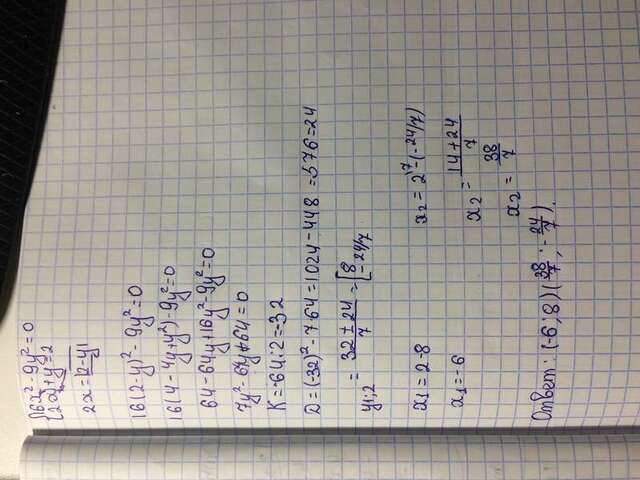 {16x² - 9y² = 0
{2x + y = 2
2x = |2-y|
16(2-y)² - 9y² = 0
16(4 - 4y + y²) - 9y² = 0
64 - 64y + 16y² - 9y² = 0
7y² - 64y + 64 = 0
K = -64:2 = -32
D = (-32)² - 7·64 = 1024 - 448 = 576 = 24
y1;2 = (32 ± 24)/7 = [8 -24/7
x1 = 2-8
x1 = -6
x2 = 2\7 - (-24/7)
x2 = (14+24)/7
x2 = 38/7
Ответ: (-6;8) (38/7; -24/7).